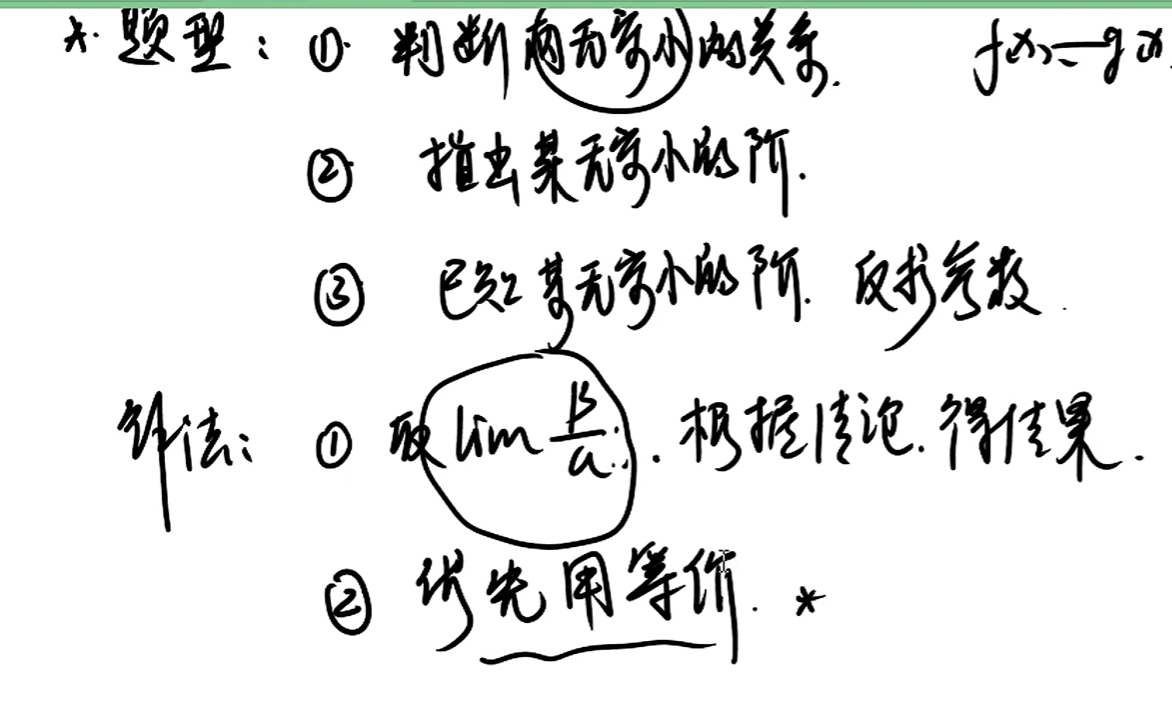 * 题型: ① 判断两无穷小的关系. f(x) = g(x
② 指出某无穷小的阶.
③ 已知某无穷小的阶. 反求参数.
解法: ① 取 lim β/α. 根据结论. 得结果.
② 优先用等价. *